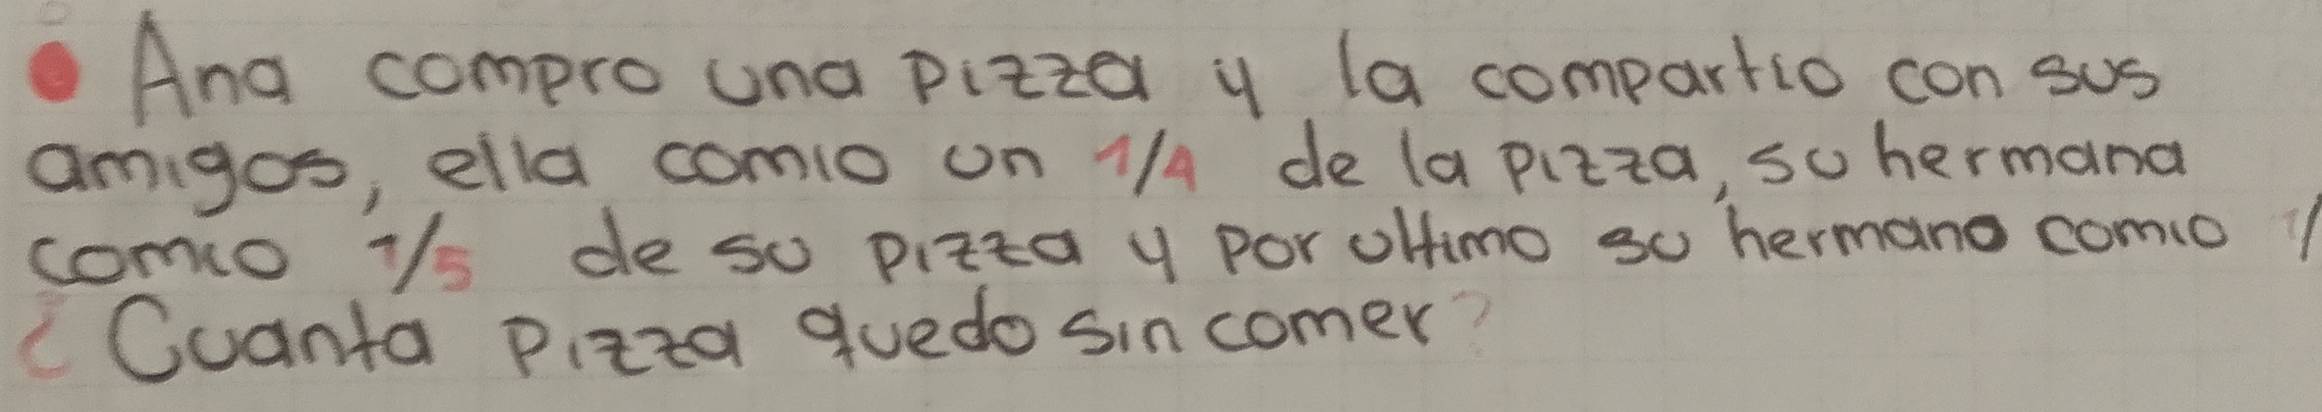 Ana compro una pizza y la compartio con sus
amigos, ella comio un 1/4 de la pizza, su hermana
comio 1/5 de su pizza y por ultimo su hermano comio 1/
¿Cuanta pizza quedo sin comer?